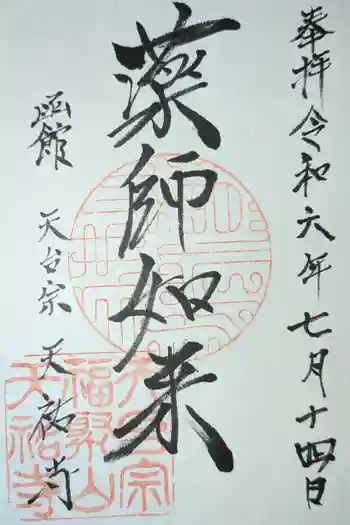 奉拝 令和六年七月十四日
薬師如来
函館 天台宗 天祐寺
天台宗
福聚山
天祐寺